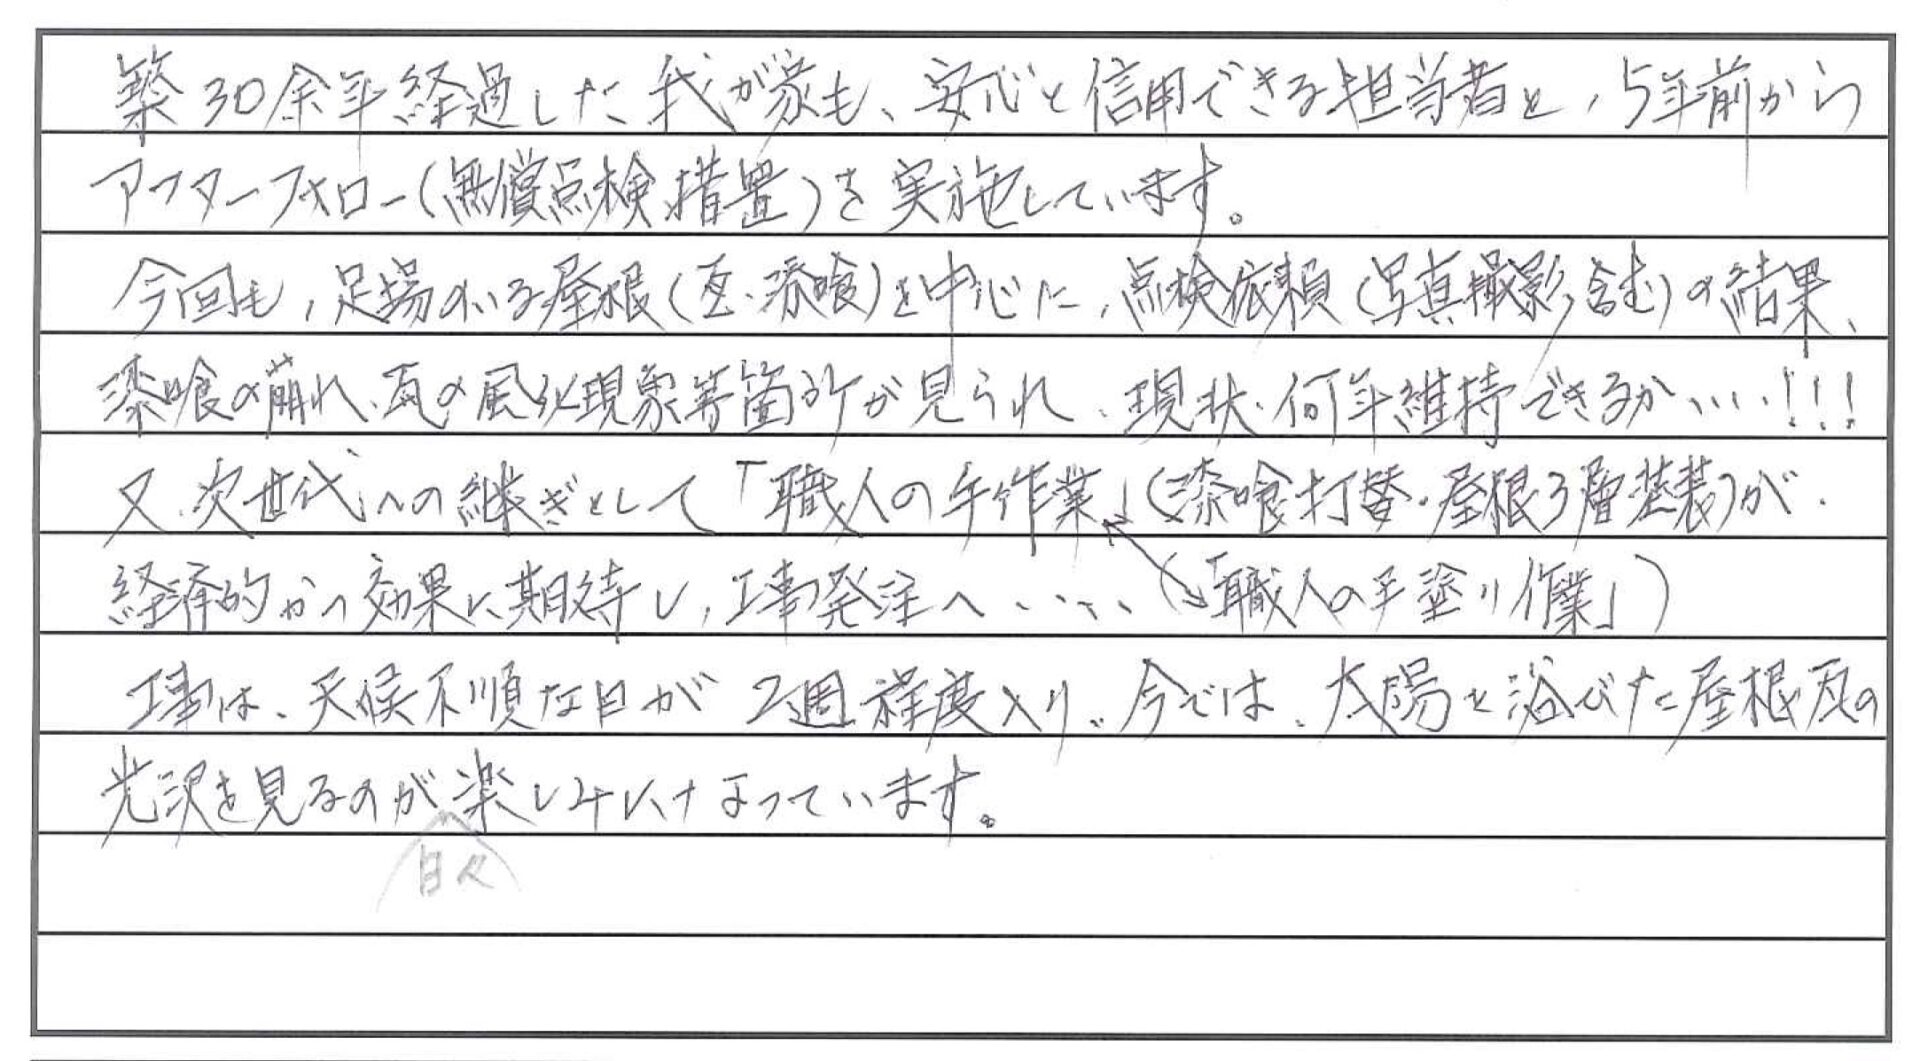 築30余年経過した我が家も、安心と信用できる担当者と、5年前から
アフターフォロー(無償点検措置)を実施しています。
今回も、足場のいる屋根(瓦・漆喰)を中心に、点検依頼(写真撮影含む)の結果、
漆喰の崩れ、瓦の風化現象等箇所が見られ、現状、何年維持できるか、、、、!!!
又、次世代への継ぎとして「職人の手作業」(漆喰打替・屋根3層塗装)が、
経済的かつ効果に期待し、工事発注へ、、、、(「職人の手塗り作業」)
工事は、天候不順な日が2週程度入り、今では、太陽を浴びた屋根瓦の
光沢を見るのが楽しみになっています。
日々